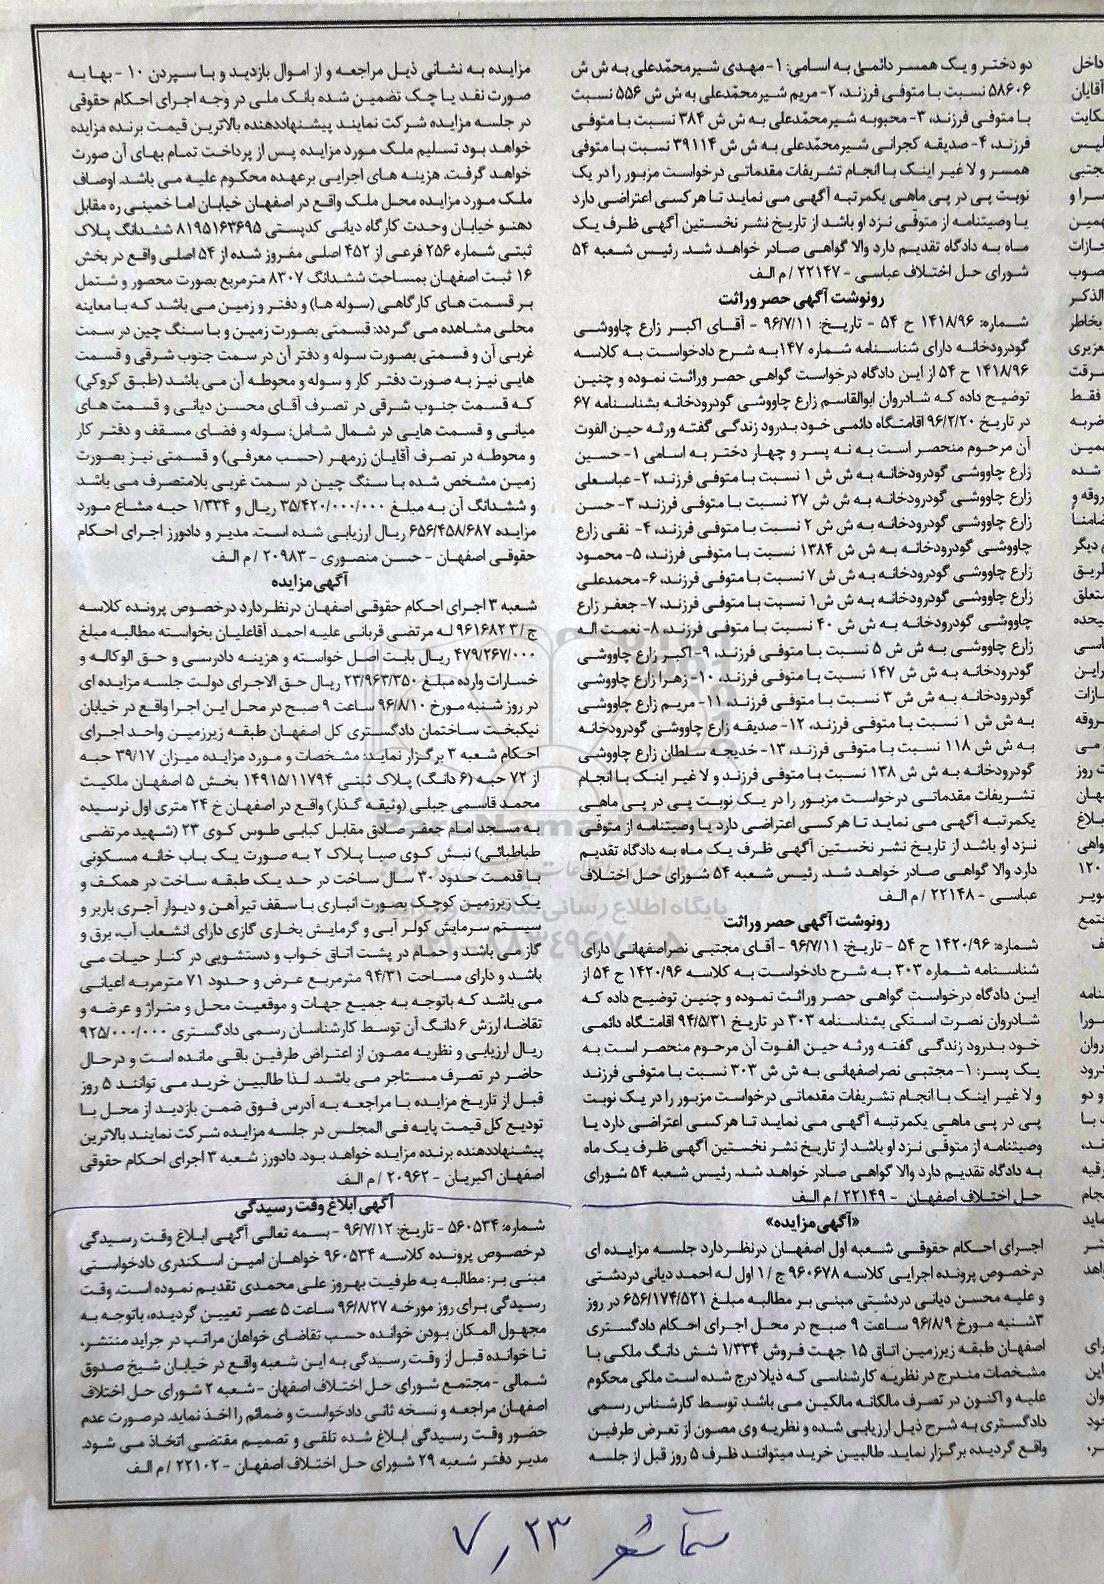 دو دختر و یک همسر دائمی به اسامی: ۱- مهدی شیرمحمّدعلی به ش ش
۵۸۶۰۶ نسبت با متوفی فرزند، ۲- مریم شیرمحمّدعلی به ش ش ۵۵۶ نسبت
با متوفی فرزند، ۳- محبوبه شیرمحمّدعلی به ش ش ۳۸۴ نسبت با متوفی
فرزند، ۴- صدیقه کجرانی شیرمحمّدعلی به ش ش ۳۹۱۱۴ نسبت با متوفی
همسر و لا غیر اینک با انجام تشریفات مقدماتی درخواست مزبور را در یک
نوبت پی در پی ماهی یکمرتبه آگهی می نماید تا هرکسی اعتراضی دارد
یا وصیتنامه از متوفّی نزد او باشد از تاریخ نشر نخستین آگهی ظرف یک
ماه به دادگاه تقدیم دارد والا گواهی صادر خواهد شد. رئیس شعبه ۵۴
شورای حل اختلاف عباسی - ۲۲۱۴۷ / م الف
رونوشت آگهی حصر وراثت
شماره: ۱۴۱۸/۹۶ ح ۵۴ - تاریخ: ۹۶/۷/۱۱ - آقای اکبر زارع چاووشی
گودرودخانه دارای شناسنامه شماره ۱۴۷به شرح دادخواست به کلاسه
۱۴۱۸/۹۶ ح ۵۴ از این دادگاه درخواست گواهی حصر وراثت نموده و چنین
توضیح داده که شادروان ابوالقاسم زارع چاووشی گودرودخانه بشناسنامه ۶۷
در تاریخ ۹۶/۲/۲۰ اقامتگاه دائمی خود بدرود زندگی گفته ورثه حین الفوت
آن مرحوم منحصر است به نه پسر و چهار دختر به اسامی ۱- حسین
زارع چاووشی گودرودخانه به ش ش ۱ نسبت با متوفی فرزند، ۲- عباسعلی
زارع چاووشی گودرودخانه به ش ش ۲۷ نسبت با متوفی فرزند، ۳- حسن
زارع چاووشی گودرودخانه به ش ش ۲ نسبت با متوفی فرزند، ۴- نقی زارع
چاووشی گودرودخانه به ش ش ۱۳۸۴ نسبت با متوفی فرزند، ۵- محمود
زارع چاووشی گودرودخانه به ش ش ۷ نسبت با متوفی فرزند، ۶- محمدعلی
زارع چاووشی گودرودخانه به ش ش۱ نسبت با متوفی فرزند، ۷- جعفر زارع
چاووشی گودرودخانه به ش ش ۴۰ نسبت با متوفی فرزند، ۸- نعمت اله
زارع چاووشی به ش ش ۵ نسبت با متوفی فرزند، ۹- اکبر زارع چاووشی
گودرودخانه به ش ش ۱۴۷ نسبت با متوفی فرزند، ۱۰- زهرا زارع چاووشی
گودرودخانه به ش ش ۳ نسبت با متوفی فرزند، ۱۱- مریم زارع چاووشی
به ش ش ۱ نسبت با متوفی فرزند، ۱۲- صدیقه زارع چاووشی گودرودخانه
به ش ش ۱۱۸ نسبت با متوفی فرزند، ۱۳- خدیجه سلطان زارع چاووشی
گودرودخانه به ش ش ۱۳۸ نسبت با متوفی فرزند و لا غیر اینک با انجام
تشریفات مقدماتی درخواست مزبور را در یک نوبت پی در پی ماهی
یکمرتبه آگهی می نماید تا هرکسی اعتراضی دارد یا وصیتنامه از متوفّی
نزد او باشد از تاریخ نشر نخستین آگهی ظرف یک ماه به دادگاه تقدیم
دارد والا گواهی صادر خواهد شد. رئیس شعبه ۵۴ شورای حل اختلاف
عباسی - ۲۲۱۴۸ / م الف
رونوشت آگهی حصر وراثت
شماره: ۱۴۲۰/۹۶ ح ۵۴ - تاریخ: ۹۶/۷/۱۱ - آقای مجتبی نصراصفهانی دارای
شناسنامه شماره ۳۰۳ به شرح دادخواست به کلاسه ۱۴۲۰/۹۶ ح ۵۴ از
این دادگاه درخواست گواهی حصر وراثت نموده و چنین توضیح داده که
شادروان نصرت استکی بشناسنامه ۳۰۳ در تاریخ ۹۴/۵/۳۱ اقامتگاه دائمی
خود بدرود زندگی گفته ورثه حین الفوت آن مرحوم منحصر است به
یک پسر: ۱- مجتبی نصراصفهانی به ش ش ۳۰۳ نسبت با متوفی فرزند
و لا غیر اینک با انجام تشریفات مقدماتی درخواست مزبور را در یک نوبت
پی در پی ماهی یکمرتبه آگهی می نماید تا هرکسی اعتراضی دارد یا
وصیتنامه از متوفّی نزد او باشد از تاریخ نشر نخستین آگهی ظرف یک ماه
به دادگاه تقدیم دارد والا گواهی صادر خواهد شد. رئیس شعبه ۵۴ شورای
حل اختلاف اصفهان - ۲۲۱۴۹ / م الف
«آگهی مزایده»
اجرای احکام حقوقی شعبه اول اصفهان درنظر دارد جلسه مزایده ای
درخصوص پرونده اجرایی کلاسه ۹۶۰۶۷۸ ج / ۱ اول له احمد دیانی دردشتی
و علیه محسن دیانی دردشتی مبنی بر مطالبه مبلغ ۶۵۶/۱۷۴/۵۲۱ در روز
۳شنبه مورخ ۹۶/۸/۹ ساعت ۹ صبح در محل اجرای احکام دادگستری
اصفهان طبقه زیرزمین اتاق ۱۵ جهت فروش ۱/۳۳۴ شش دانگ ملکی با
مشخصات مندرج در نظریه کارشناسی که ذیلا درج شده است ملکی محکوم
علیه و اکنون در تصرف مالکانه مالکین می باشد توسط کارشناس رسمی
دادگستری به شرح ذیل ارزیابی شده و نظریه وی مصون از تعرض طرفین
واقع گردیده برگزار نماید. طالبین خرید میتوانند ظرف ۵ روز قبل از جلسه
مزایده به نشانی ذیل مراجعه و از اموال بازدید و با سپردن ۱۰ - بها به
صورت نقد یا چک تضمین شده بانک ملی در وجه اجرای احکام حقوقی
در جلسه مزایده شرکت نمایند پیشنهاددهنده بالاترین قیمت برنده مزایده
خواهد بود تسلیم ملک مورد مزایده پس از پرداخت تمام بهای آن صورت
خواهد گرفت. هزینه های اجرایی برعهده محکوم علیه می باشد. اوصاف
ملک مورد مزایده محل ملک واقع در اصفهان خیابان اما خمینی ره مقابل
دهنو خیابان وحدت کارگاه دیانی کدپستی ۸۱۹۵۱۶۳۶۹۵ ششدانگ پلاک
ثبتی شماره ۲۵۶ فرعی از ۴۵۲ اصلی مفروز شده از ۵۴ اصلی واقع در بخش
۱۶ ثبت اصفهان بمساحت ششدانگ ۸۳۰۷ مترمربع بصورت محصور و شتمل
بر قسمت های کارگاهی (سوله ها) و دفتر و زمین می باشد که با معاینه
محلی مشاهده می گردد: قسمتی بصورت زمین و با سنگ چین در سمت
غربی آن و قسمتی بصورت سوله و دفتر آن در سمت جنوب شرقی و قسمت
هایی نیز به صورت دفتر کار و سوله و محوطه آن می باشد (طبق کروکی)
که قسمت جنوب شرقی در تصرف آقای محسن دیانی و قسمت های
میانی و قسمت هایی در شمال شامل: سوله و فضای مسقف و دفتر کار
و محوطه در تصرف آقایان زرمهر (حسب معرفی) و قسمتی نیز بصورت
زمین مشخص شده با سنگ چین در سمت غربی بلامتصرف می باشد
و ششدانگ آن به مبلغ ۳۵/۴۲۰/۰۰۰/۰۰۰ ریال و ۱/۳۳۴ حبه مشاع مورد
مزایده ۶۵۶/۴۵۸/۶۸۷ ریال ارزیابی شده است. مدیر و دادورز اجرای احکام
حقوقی اصفهان - حسن منصوری - ۲۰۹۸۳ / م الف
آگهی مزایده
شعبه ۳ اجرای احکام حقوقی اصفهان درنظر دارد درخصوص پرونده کلاسه
ج / ۳ ۹۶۱۶۸۲ له مرتضی قربانی علیه احمد آقاعلیان بخواسته مطالبه مبلغ
۴۷۹/۲۶۷/۰۰۰ ریال بابت اصل خواسته و هزینه دادرسی و حق الوکاله و
خسارات وارده مبلغ ۲۳/۹۶۳/۳۵۰ ریال حق الاجرای دولت جلسه مزایده ای
در روز شنبه مورخ ۹۶/۸/۱۰ ساعت ۹ صبح در محل این اجرا واقع در خیابان
نیکبخت ساختمان دادگستری کل اصفهان طبقه زیرزمین واحد اجرای
احکام شعبه ۳ برگزار نماید: مشخصات و مورد مزایده میزان ۳۹/۱۷ حبه
از ۷۲ حبه (۶ دانگ) پلاک ثبتی ۱۴۹۱۵/۱۱۷۹۴ بخش ۵ اصفهان ملکیت
محمد قاسمی جبلی (وثیقه گذار) واقع در اصفهان خ ۲۴ متری اول نرسیده
به مسجد امام جعفر صادق مقابل کبابی طوس کوی ۲۳ (شهید مرتضی
طباطبائی) نبش کوی صبا پلاک ۲ به صورت یک باب خانه مسکونی
با قدمت حدود ۳۰ سال ساخت در حد یک طبقه ساخت در همکف و
یک زیرزمین کوچک بصورت انباری با سقف تیرآهن و دیوار آجری باربر و
سیستم سرمایش کولر آبی و گرمایش بخاری گازی دارای انشعاب آب، برق و
گاز می باشد و حمام در پشت اتاق خواب و دستشویی در کنار حیات می
باشد و دارای مساحت ۹۴/۳۱ مترمربع عرض و حدود ۷۱ مترمربه اعیانی
می باشد که باتوجه به جمیع جهات و موقعیت محل و متراژ و عرضه و
تقاضا، ارزش ۶ دانگ آن توسط کارشناسان رسمی دادگستری ۹۲۵/۰۰۰/۰۰۰
ریال ارزیابی و نظریه مصون از اعتراض طرفین باقی مانده است و درحال
حاضر در تصرف مستاجر می باشد. لذا طالبین خرید می توانند ۵ روز
قبل از تاریخ مزایده با مراجعه به آدرس فوق ضمن بازدید از محل با
تودیع کل قیمت پایه فی المجلس در جلسه مزایده شرکت نمایند بالاترین
پیشنهاددهنده برنده مزایده خواهد بود. دادورز شعبه ۳ اجرای احکام حقوقی
اصفهان اکبریان - ۲۰۹۶۲ / م الف
آگهی ابلاغ وقت رسیدگی
شماره: ۵۶۰۵۳۴ - تاریخ: ۹۶/۷/۱۲ - بسمه تعالی آگهی ابلاغ وقت رسیدگی
درخصوص پرونده کلاسه ۹۶۰۵۳۴ خواهان امین اسکندری دادخواستی
مبنی بر: مطالبه به طرفیت بهروز علی محمدی تقدیم نموده است. وقت
رسیدگی برای روز مورخه ۹۶/۸/۲۷ ساعت ۵ عصر تعیین گردیده، باتوجه به
مجهول المکان بودن خوانده حسب تقاضای خواهان مراتب در جراید منتشر،
تا خوانده قبل از وقت رسیدگی به این شعبه واقع در خیابان شیخ صدوق
شمالی - مجتمع شورای حل اختلاف اصفهان - شعبه ۲ شورای حل اختلاف
اصفهان مراجعه و نسخه ثانی دادخواست و ضمائم را اخذ نماید. درصورت عدم
حضور وقت رسیدگی ابلاغ شده تلقی و تصمیم مقتضی اتخاذ می شود.
مدیر دفتر شعبه ۲۹ شورای حل اختلاف اصفهان - ۲۲۱۰۲ / م الف
۷٫۲۳